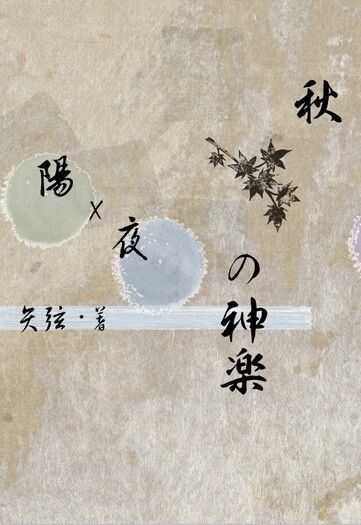 秋
の神楽
陽
x
夜
矢弦・著